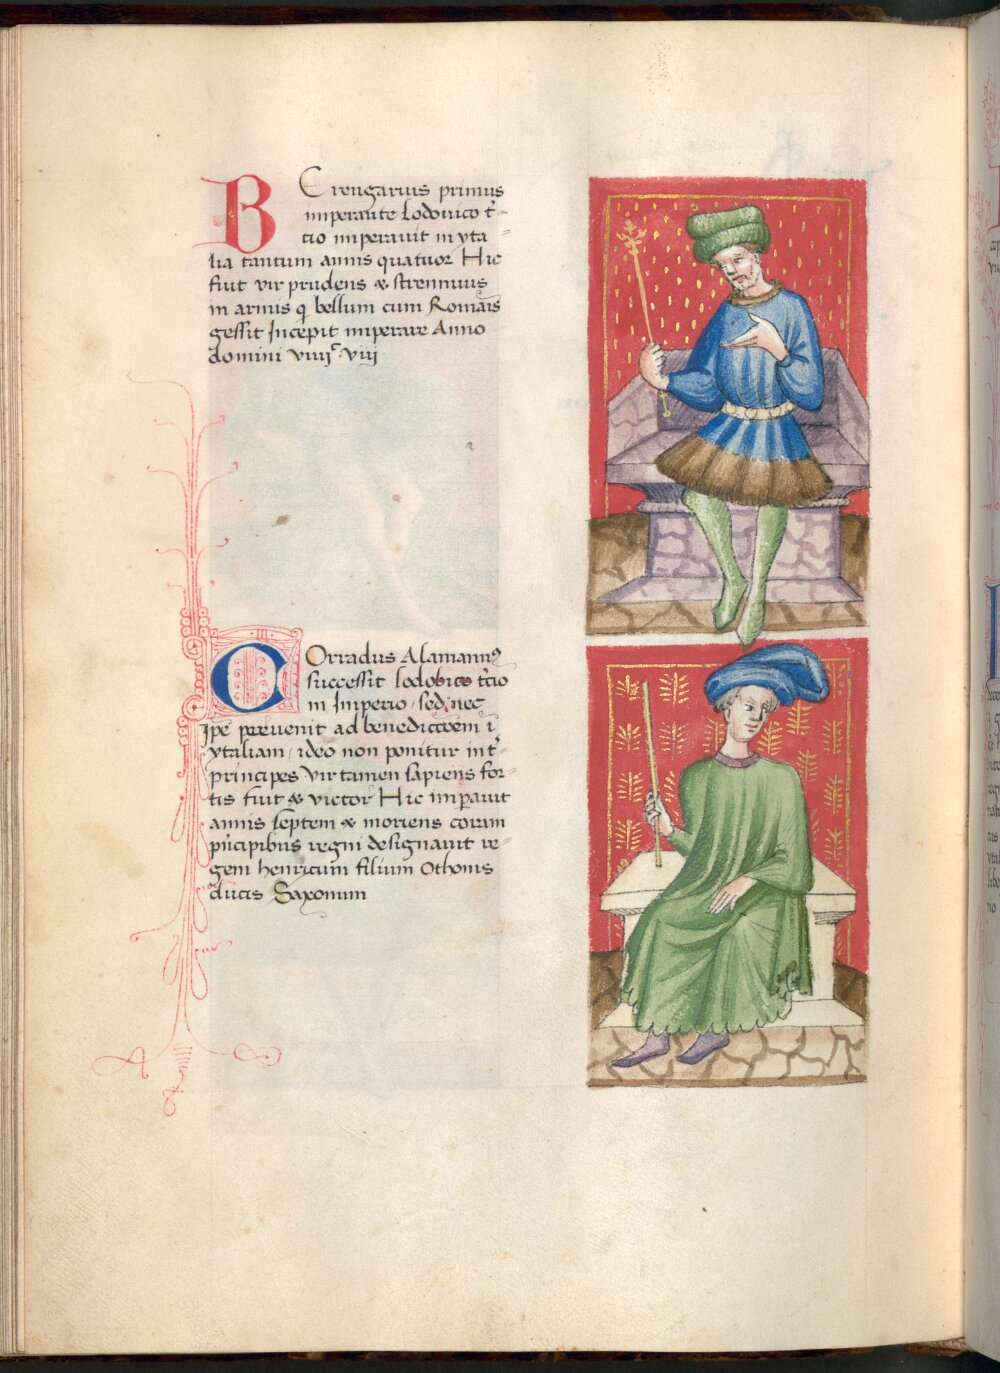 BErengarius primus
imperante Lodouico t̄-
tio imperauit in yta-
lia tantum annis quatuor Hic
fuit vir prudens & strennuus
in armis q̣ bellum cum Romāis
gessit Incepit imperare Anno
domini viiijᶜ viij
COrradus Alamannꝰ
successit Lodouico t̄cio
in Imperio sed nec
ip̄e preuenit ad benedictōem ī
ytaliam ideo non ponitur int̄-
principes Vir tamen sapiens for-
tis fuit & victor Hic imꝑauit
annis septem & moriens coram
pͥncipibus regni designauit re-
gem henricum filium Othonis
ducis Saxonum